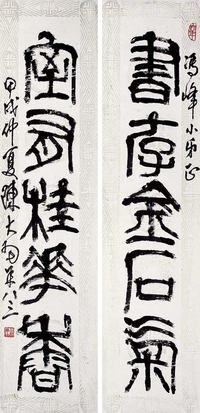 馮峰小弟正
書存金石氣
室有桂華香
甲戌仲夏陳大羽年八三